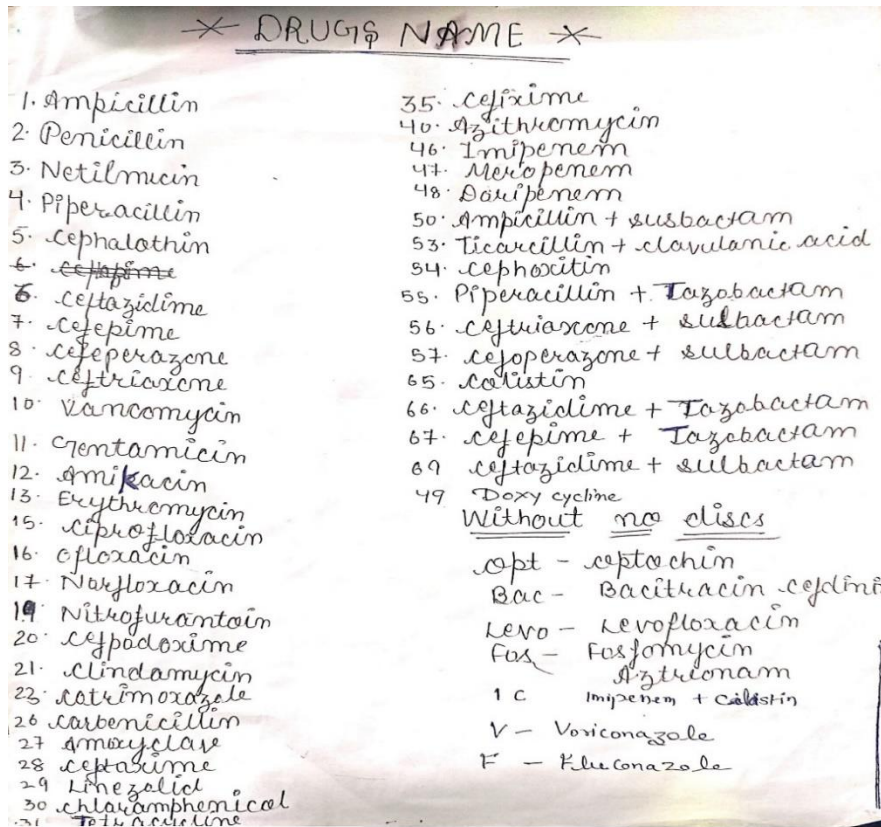 DRUGS NAME
1. Ampicillin
2. Penicillin
3. Netilmicin
4. Piperacillin
5. cephalothin
6. ceftazidime
7. cefepime
8. cefeperazone
9. ceftriaxone
10. Vancomycin
11. Gentamicin
12. Amikacin
13. Erythromycin
15. ciprofloxacin
16. Ofloxacin
17. Norfloxacin
19 Nitrofurantoin
20. cefpodoxime
21. clindamycin
23. cotrimoxazole
26 carbenicillin
27 Amoxyclave
28 ceftaxime
29 Linezolid
30 chloramphenicol
31 Tetracycline
35. cefixime
40. Azithromycin
46. Imipenem
47. Meropenem
48. Doripenem
50. Ampicillin + susbactam
53. Ticarcillin + clavulanic acid
54. cephoxitin
55. Piperacillin + Tazobactam
56. ceftriaxone + sulbactam
57. cefoperazone + sulbactam
65. colistin
66. ceftazidime + Tazobactam
67. cefepime + Tazobactam
69 ceftazidime + sulbactam
49 Doxy cycline
Without no discs
opt - optochin
Bac - Bacitracin
Levo - Levofloxacin
Fos - Fosfomycin
Aztrionam
1 C Imipenem + Colistin
V - Voriconazole
F - Fluconazole